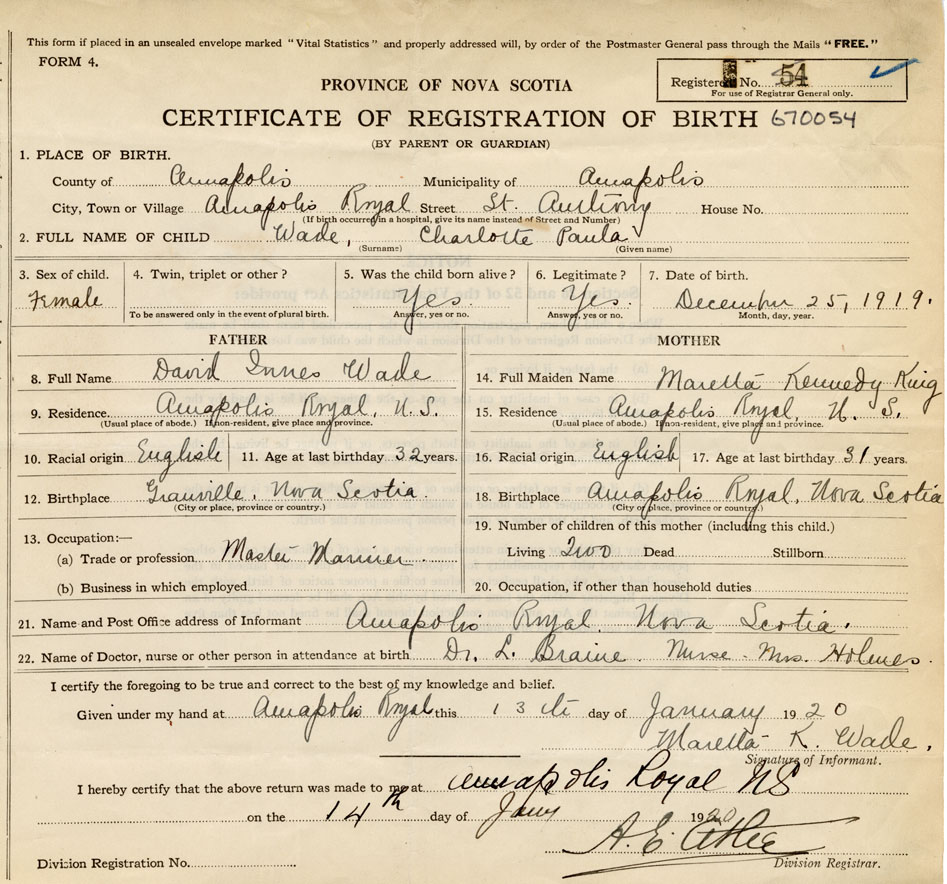 This form if placed in an unsealed envelope marked "Vital Statistics" and properly addressed will, by order of the Postmaster General pass through the Mails "FREE."
FORM 4.
Registered No. 54
For use of Registrar General only.
PROVINCE OF NOVA SCOTIA
CERTIFICATE OF REGISTRATION OF BIRTH 670054
(BY PARENT OR GUARDIAN)
1. PLACE OF BIRTH.
County of Annapolis Municipality of Annapolis
City, Town or Village Annapolis Royal Street St. Anthony House No.
(If birth occurred in a hospital, give its name instead of Street and Number)
2. FULL NAME OF CHILD Wade, Charlotte Paula
(Surname) (Given name)
3. Sex of child. 4. Twin, triplet or other? 5. Was the child born alive? 6. Legitimate? 7. Date of birth.
Female Yes. Yes. December 25, 1919.
To be answered only in the event of plural birth. Answer, yes or no. Answer, yes or no. Month, day, year.
FATHER MOTHER
8. Full Name David Innes Wade 14. Full Maiden Name Maretta Kennedy King
9. Residence Annapolis Royal, N.S. 15. Residence Annapolis Royal, N. S.
(Usual place of abode.) If non-resident, give place and province. (Usual place of abode.) If non-resident, give place and province.
10. Racial origin English 11. Age at last birthday 32 years. 16. Racial origin English 17. Age at last birthday 31 years.
12. Birthplace Granville, Nova Scotia. 18. Birthplace Annapolis Royal, Nova Scotia
(City or place, province or country.) (City or place, province or country.)
13. Occupation:— 19. Number of children of this mother (including this child.)
(a) Trade or profession Master Mariner Living Two Dead Stillborn
(b) Business in which employed 20. Occupation, if other than household duties
21. Name and Post Office address of Informant Annapolis Royal. Nova Scotia.
22. Name of Doctor, nurse or other person in attendance at birth Dr. L. Braine. Nurse - Mrs. Holmes.
I certify the foregoing to be true and correct to the best of my knowledge and belief.
Given under my hand at Annapolis Royal this 13th day of January 1920
Maretta K. Wade,
Signature of Informant.
I hereby certify that the above return was made to me at Annapolis Royal NS
on the 14th day of Jany 1920
A. E.
Division Registration No. Division Registrar.